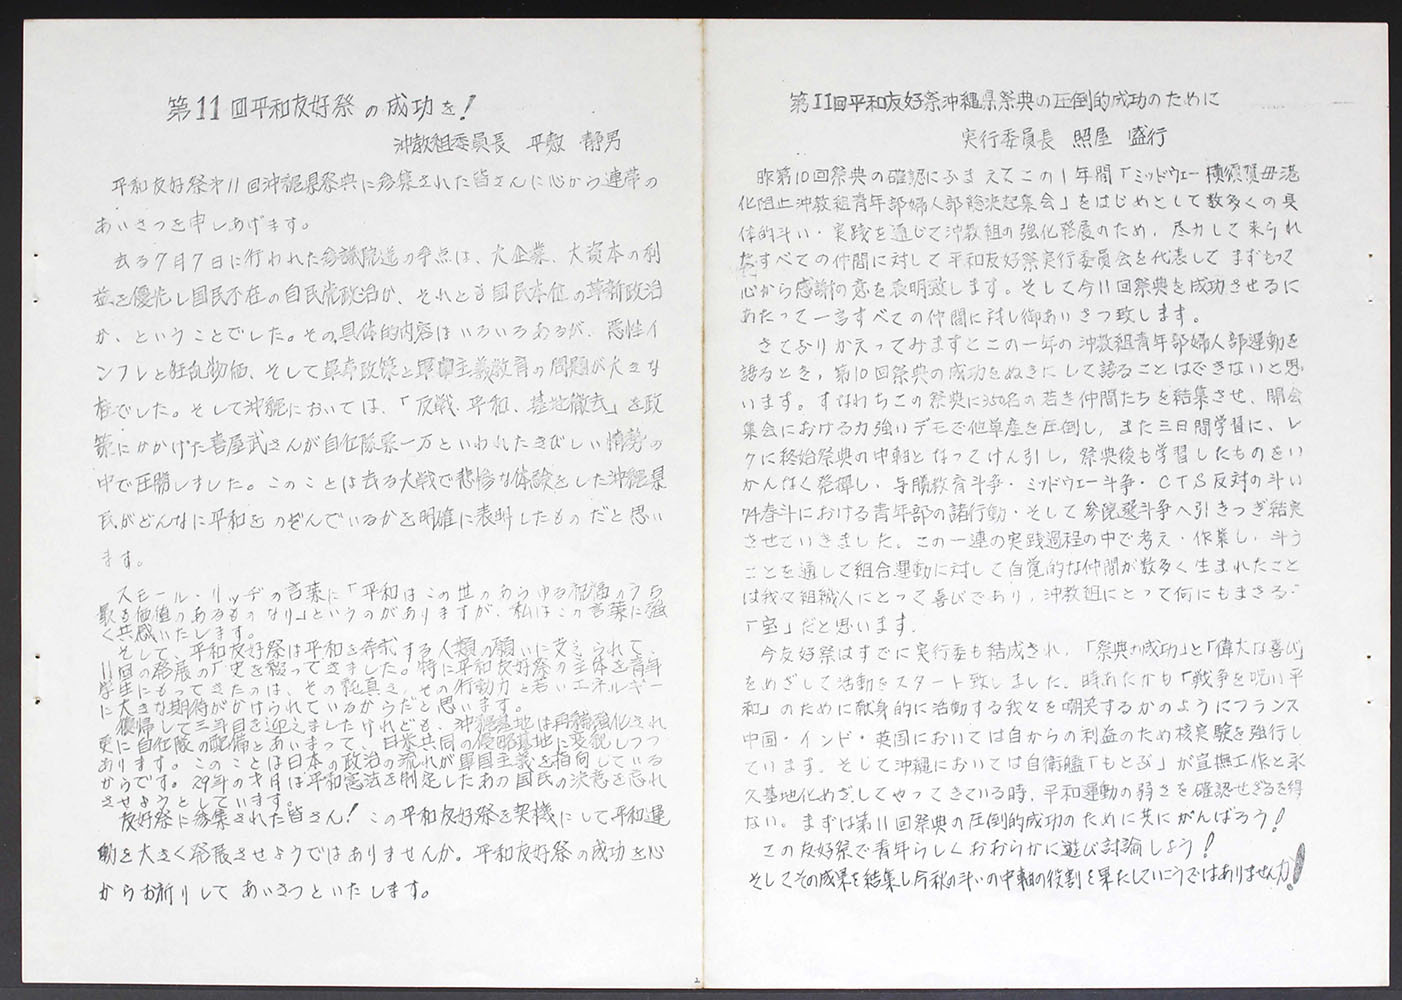 第11回平和友好祭の成功を!
沖教組委員長 平敷 静男
平和友好祭第11回沖縄県祭典に参集された皆さんに心から連帯の
あいさつを申しあげます。
去る7月7日に行われた参議院選の争点は、大企業、大資本の利
益を優先し国民不在の自民党政治か、それとも国民本位の革新政治
か、ということでした。その具体的内容はいろいろあるが、悪性イ
ンフレと狂乱物価、そして軍事政策と軍国主義教育の問題が大きな
柱でした。そして沖縄においては、「反戦、平和、基地撤去」を政
策にかかげた喜屋武さんが自衛隊票一万といわれたきびしい情勢の
中で圧勝しました。このことは去る大戦で悲惨な体験をした沖縄県
民がどんなに平和をのぞんでいるかを明確に表明したものだと思い
ます。
スモール・リッヂの言葉に「平和はこの世のあらゆる祝福のうち
最も価値のあるものなり」というのがありますが、私はこの言葉に強
く共感いたします。
そして、平和友好祭は平和を希求する人類の願いに支えられて、
11回の発展の「史を綴ってきました。特に平和友好祭の主体を青年
学生にもってきたのは、その純真さ、その行動力と若いエネルギー
に大きな期待がかけられているからだと思います。
復帰して三年目を迎えましたけれども、沖縄基地は再編強化され
更に自衛隊の配備とあいまって、日米共同の侵略基地に変貌しつつ
あります。このことは日本の政治の流れが軍国主義を指向している
からです。29年の才月は平和憲法を制定したあの国民の決意を忘れ
させようとしています。
友好祭に参集された皆さん!この平和友好祭を契機にして平和運
動を大きく発展させようではありませんか。平和友好祭の成功を心
からお祈りしてあいさつといたします。
第11回平和友好祭沖縄県祭典の圧倒的成功のために
実行委員長 照屋 盛行
昨第10回祭典の確認にふまえてこの1年間「ミッドウェー横須賀母港
化阻止沖教組青年部婦人部総決起集会」をはじめとして数多くの具
体的斗い・実践を通じて沖教組の強化発展のため、尽力して来られ
たすべての仲間に対して平和友好祭実行委員会を代表してまずもって
心から感謝の意を表明致します。そして今11回祭典を成功させるに
あたって一言すべての仲間に対し御あいさつ致します。
さてふりかえってみますとこの一年の沖教組青年部婦人部運動を
語るとき、第10回祭典の成功をぬきにして語ることはできないと思
います。すなわちこの祭典に350名の若き仲間たちを結集させ、開会
集会における力強いデモで他単産を圧倒し、また三日間学習に、レ
クに終始祭典の中軸となってけん引し、祭典後も学習したものをい
かんなく発揮し、与勝教育斗争・ミッドウェー斗争・CTS反対の斗い
74春斗における青年部の諸行動・そして参院選斗争へ引きつぎ結実
させていきました。この一連の実践過程の中で考え・作業し、斗う
ことを通して組合運動に対して自覚的な仲間が数多く生まれたこと
は我々組織人にとって喜びであり、沖教組にとって何にもまさる
「宝」だと思います。
今友好祭はすでに実行委も結成され、「祭典の成功」と「偉大な喜び」
をめざして活動をスタート致しました。時あたかも「戦争を呪い平
和」のために献身的に活動する我々を嘲笑するかのようにフランス
中国・インド・英国においては自からの利益のため核実験を強行し
ています。そして沖縄においては自衛艦「もとぶ」が宣撫工作と永
久基地化めざしてやってきている時、平和運動の弱さを確認せざるを得
ない。まずは第11回祭典の圧倒的成功のために共にがんばろう!
この友好祭で青年らしくおおらかに遊び討論しよう!
そしてその成果を結集し今秋の斗いの中軸の役割を果たしていこうではありませんか!
2